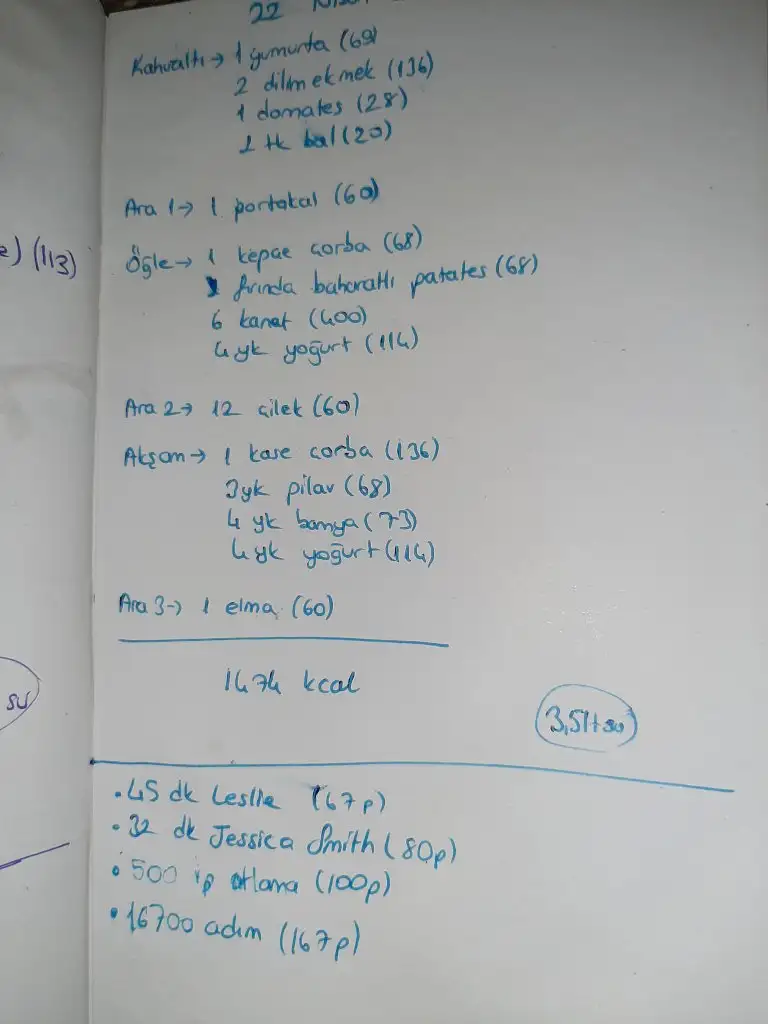 22 Nisan
Kahvaltı → 1 yumurta (69)
2 dilim ekmek (136)
1 domates (28)
1 tk bal (20)
Ara 1 → 1 portakal (60)
Öğle → 1 kepçe çorba (68)
fırında baharatlı patates (68)
6 kanat (400)
4 yk yoğurt (114)
Ara 2 → 12 çilek (60)
Akşam → 1 kase çorba (136)
3 yk pilav (68)
4 yk bamya (73)
4 yk yoğurt (114)
Ara 3 → 1 elma (60)
1474 kcal
3,5 lt su
• 45 dk Leslie (67p)
• 32 dk Jessica Smith (80p)
• 500 ip atlama (100p)
• 16700 adım (167p)
) (113)
su